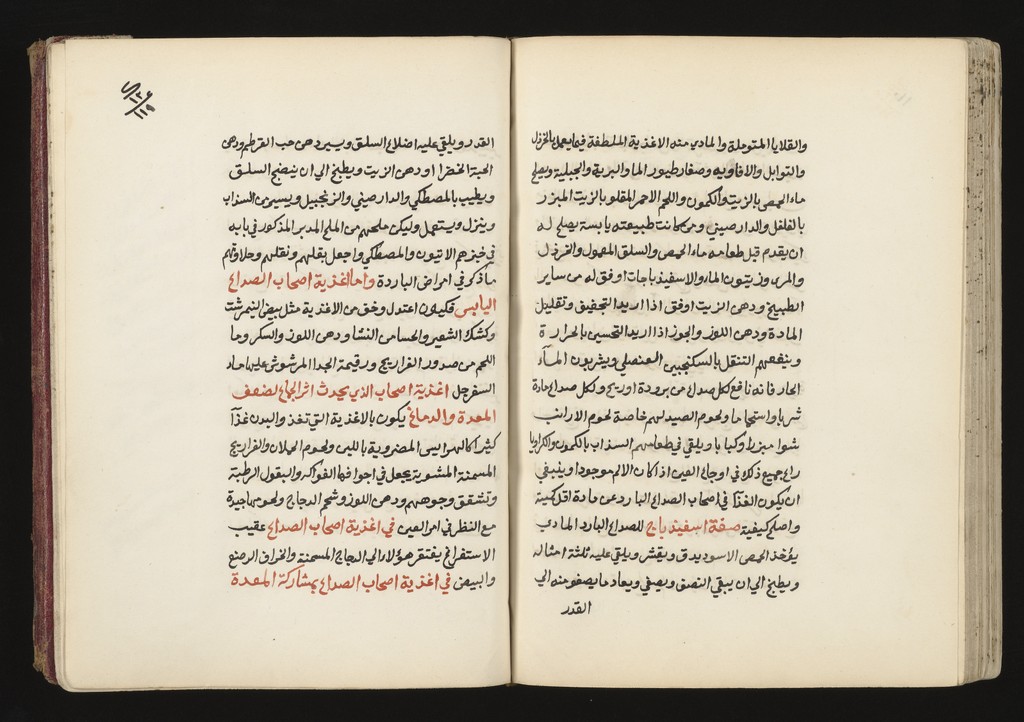 والقلايا المتوبلة والمادي منه الاغذية الملطفة فيما يعمل بالخردل
والتوابل والافاويه وصغار طيور الماء والبرية والجبلية ويصلح
ماء الحمص بالزيت والكمون واللحم الاحمر المقلو بالزيت المبزر
بالفلفل والدارصيني ومن كانت طبيعته يابسة يصلح له
ان يقدم قبل طعامه ماء الحمص والسلق المعمول والخردل
والمري وزيتون الماء والاسفيذباجات اوفق له من ساير
الطبيخ ودهن الزيت اوفق اذا اريد التجفيف وتقليل
المادة ودهن اللوز والجوز اذا اريد التحسين بالحرارة
وينفعهم التنقل بالسكنجبين العنصلي ويشربون المآء
الحار فانه نافع لكل صداع من برودة او ريح ولكل صداع حادة
شربا واستحماما ولحوم الصيد لهم خاصة لحوم الارانب
شوا مبزرا وكبابا ويلقي في طعامهم السذاب بالكمون والكراويا
راع جميع ذكر في اوجاع العين اذ كان الالم موجودا وينبغي
ان يكون الغذا في اصحاب الصداع البارد عن مادة اقل كمية
واصلح كيفية صفة اسفيذباج للصداع البارد المادي
يؤخذ الحمص الاسود يدق ويقشر ويلقي عليه ثلثة امثاله
ويطبخ الي ان يبقي النصف ويصفي ويعاد ما يصفو منه الي
القدر
١٢٤
١١٩
القدر ويلقي عليه اضلاع السلق ويسير دهن حب القرطم ودهن
الحبة الخضرا او دهن الزيت ويطبخ الي ان ينضج السلق
ويطيب بالمصطكي والدارصيني والزنجبيل ويسير من السذاب
وينزل ويستعمل وليكن ملحهم من الملح المدبر المذكور في بابه
في خبزهم الانيون والمصطكي واجعل بقلهم ونقلهم وحلاوتهم
ما ذكر في امراض الباردة واما اغذية اصحاب الصداع
اليابس فليكون اعتدل وخف من الاغذية مثل بيض النيمرشت
وكشك الشعير والحسا من النشا ودهن اللوز والسكر وما
اللحم من صدور الفراريج ورقيمة الجدا المرشوش عليها ماء
السفرجل اغذية اصحاب الذي يحدث اثر الجماع لضعف
المعدة والدماغ يكون بالاغذية التي تغذ والبدن غذآ
كثيرا كالهرايس المضروبة باللبن ولحوم الحملان والفراريج
المسمنة المشوية يجعل في اجوافها الفواكه والبقول الرطبة
وتشقق وجوههم ودهن اللوز وشحم الدجاج ولحومها جيدة
مع النظر في امر العين في اغذية اصحاب الصداع عقيب
الاستفراغ يفتقر هؤلاء الي الدجاج المسمنة والخراف الرضع
والبيض في اغذية اصحاب الصداع بمشاركة المعدة